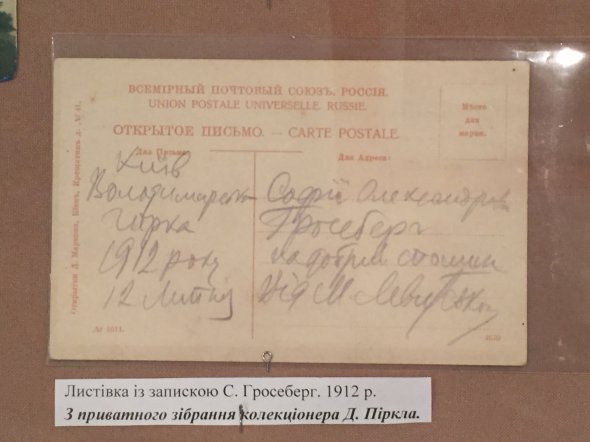 ВСЕМІРНЫЙ ПОЧТОВЫЙ СОЮЗЪ. РОССІЯ.
UNION POSTALE UNIVERSELLE. RUSSIE.
ОТКРЫТОЕ ПИСЬМО. — CARTE POSTALE.
Мѣсто
для
марки.
Для Письма:
Для Адреса:
Київ
Володимирська
гірка
1912 року
12 Липня
Софії Олександрів
Гросеберг
на добрий спомин
Від М. Левитської
Открытки Д. Маркова, Кіевъ, Крещатикъ д. № 41.
Листівка із запискою С. Гросеберг. 1912 р.
З приватного зібрання колекціонера Д. Піркла.